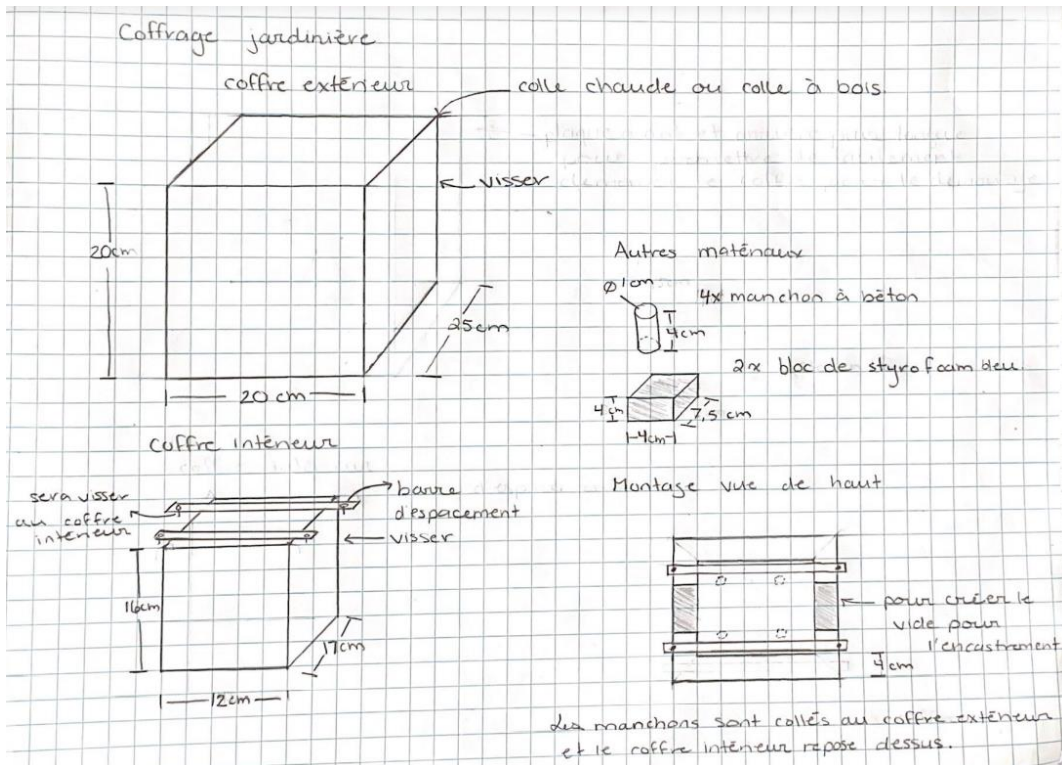 Coffrage jardinière
coffre extérieur
colle chaude ou colle à bois.
visser
20cm
25cm
20 cm
Autres matériaux
ø1cm
4x manchon à béton
4cm
2x bloc de styrofoam bleu.
4 cm
7,5 cm
4cm
coffre intérieur
sera visser
au coffre
intérieur
barre
d'espacement
visser
16cm
17cm
12cm
Montage vue de haut
pour créer le
vide pour
l'encastrement
4cm
Les manchons sont collés au coffre extérieur
et le coffre intérieur repose dessus.